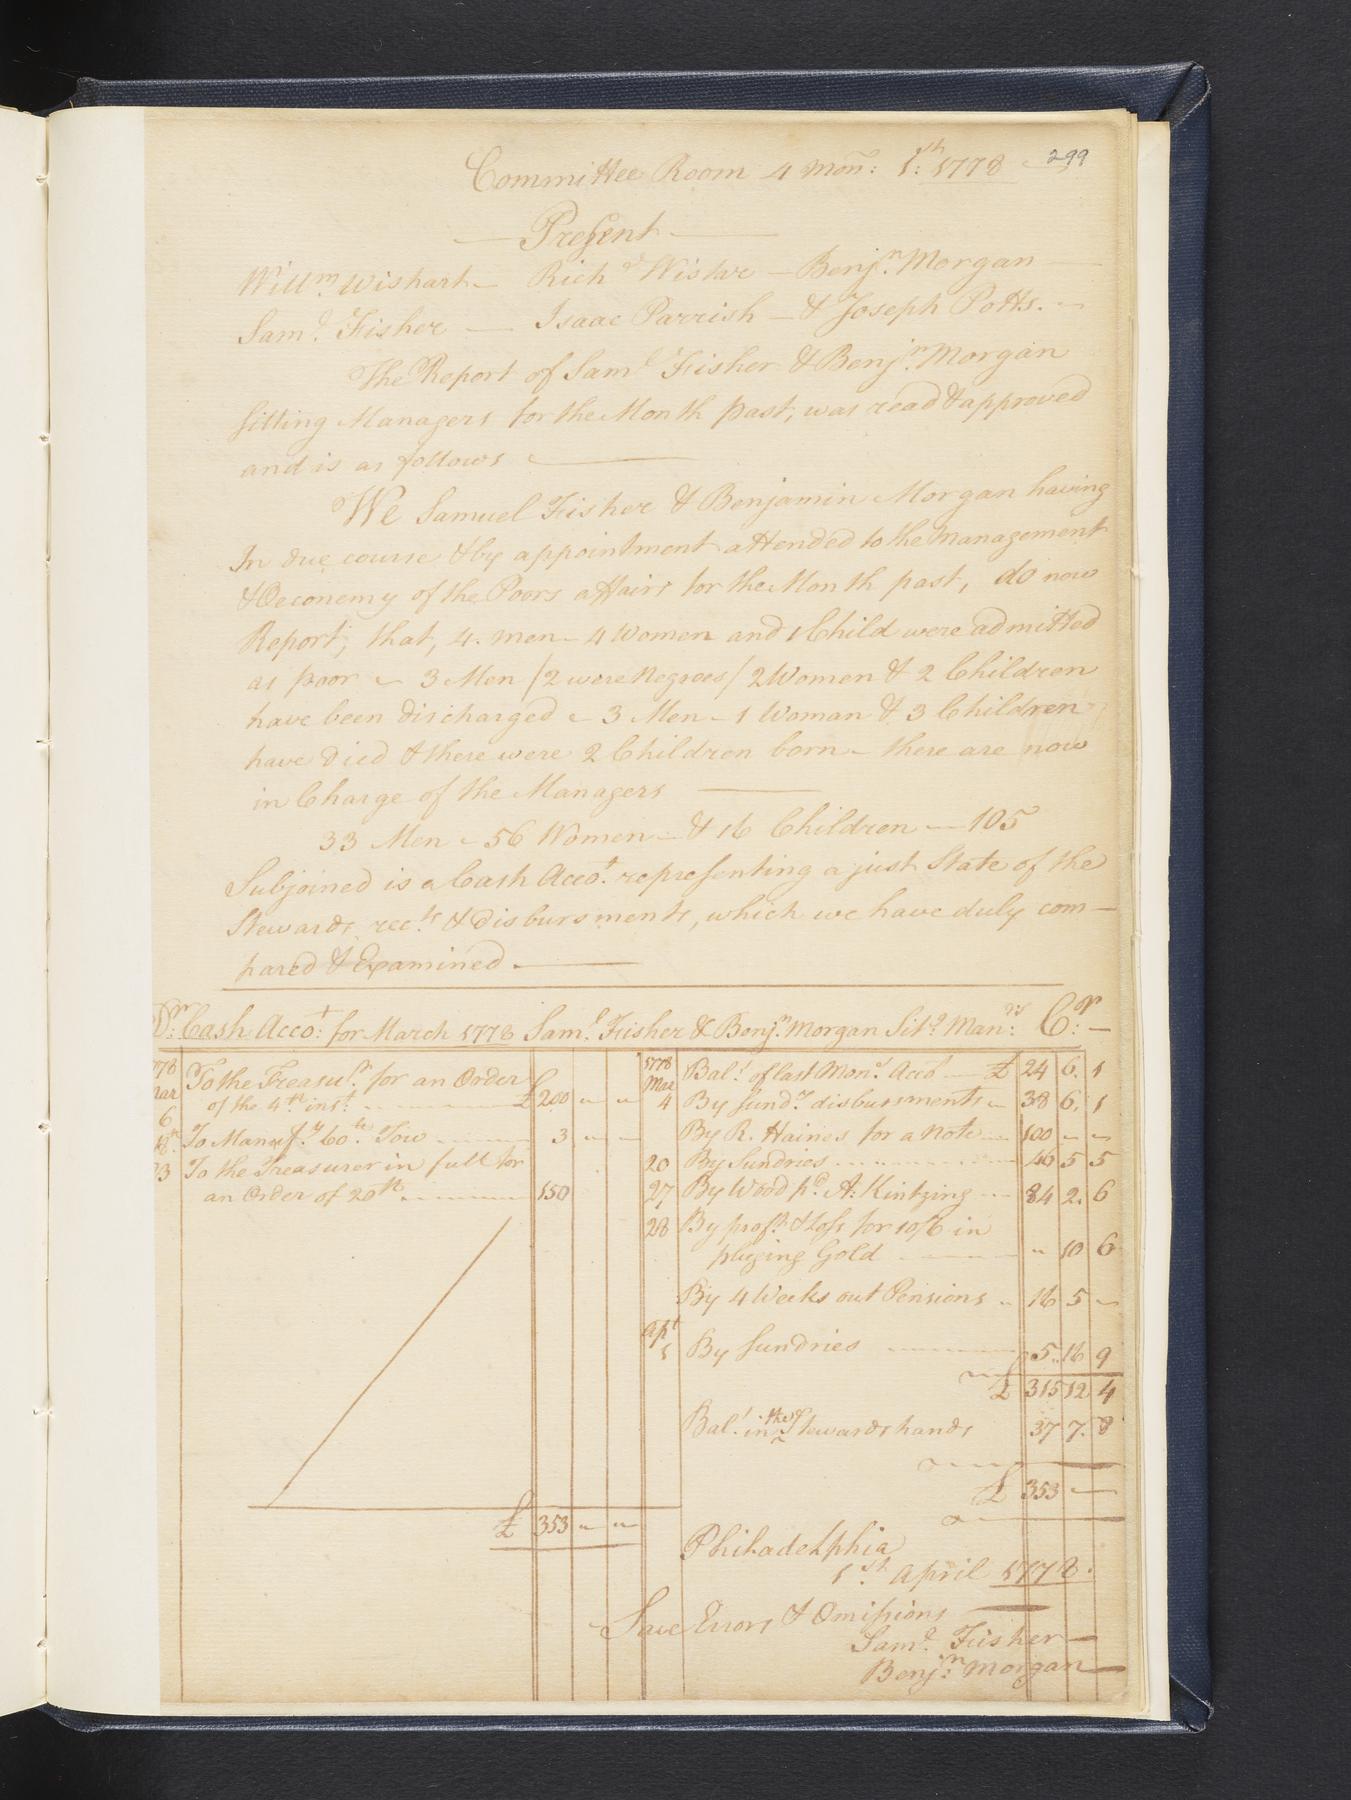 299
Committee Room 4 Mon: 1:th 1778
Present
Willm. Wishart Richd Wistar Benjn. Morgan
Saml. Fisher Isaac Parrish & Joseph Potts.
The Report of Saml Fisher & Benjn. Morgan
Sitting Managers for the Month past, was read & approved
and is as follows
We Samuel Fisher & Benjamin Morgan having
In due course & by appointment attended to the management
& Oeconemy of the Poors affairs for the Month past, do now
Report, that, 4. men 4 Women and 1 Child were admitted
as poor 3 Men / 2 were Negroes / 2 Women & 2 Children
have been discharged 3 Men 1 Woman & 3 Children
have died & there were 2 Children born there are now
in Charge of the Managers
33 Men 56 Women & 16 Children 105
Subjoined is a Cash Accot. representing a just State of the
Stewards rects & disbursments, which we have duly com-
pared & Examined.
Dr: Cash Accot: for March 1778 Saml. Fisher & Benjn. Morgan Sitg Manrs: Cr:
To the Treasur. for an Order
of the 4th inst £ 200 " "
6
To Manufy 60 lb Tow 3 " "
To the Treasurer in full for
an Order of 20th 150
£ 353 " "
1778 Mar Bal. of last Mons. Acco £ 24 6. 1
4 By Sundy disbursments 38 6. 1
By R. Haines for a note 100 " "
20 By Sundries 46 5 5
27 By Wood pd. A. Kintzing 84 2. 6
28 By proft & Loss for 10/6 in
pluging Gold " 10 6
By 4 Weeks out Pensions 16 5 "
Apl 1 By Sundries 5. 16 9
£ 315 12 4
Bal. in the Stewards hands 37 7. 8
£ 353
Philadelphia
1st. April 1778.
Save Errors & Omissions
Saml. Fisher
Benjn. Morgan